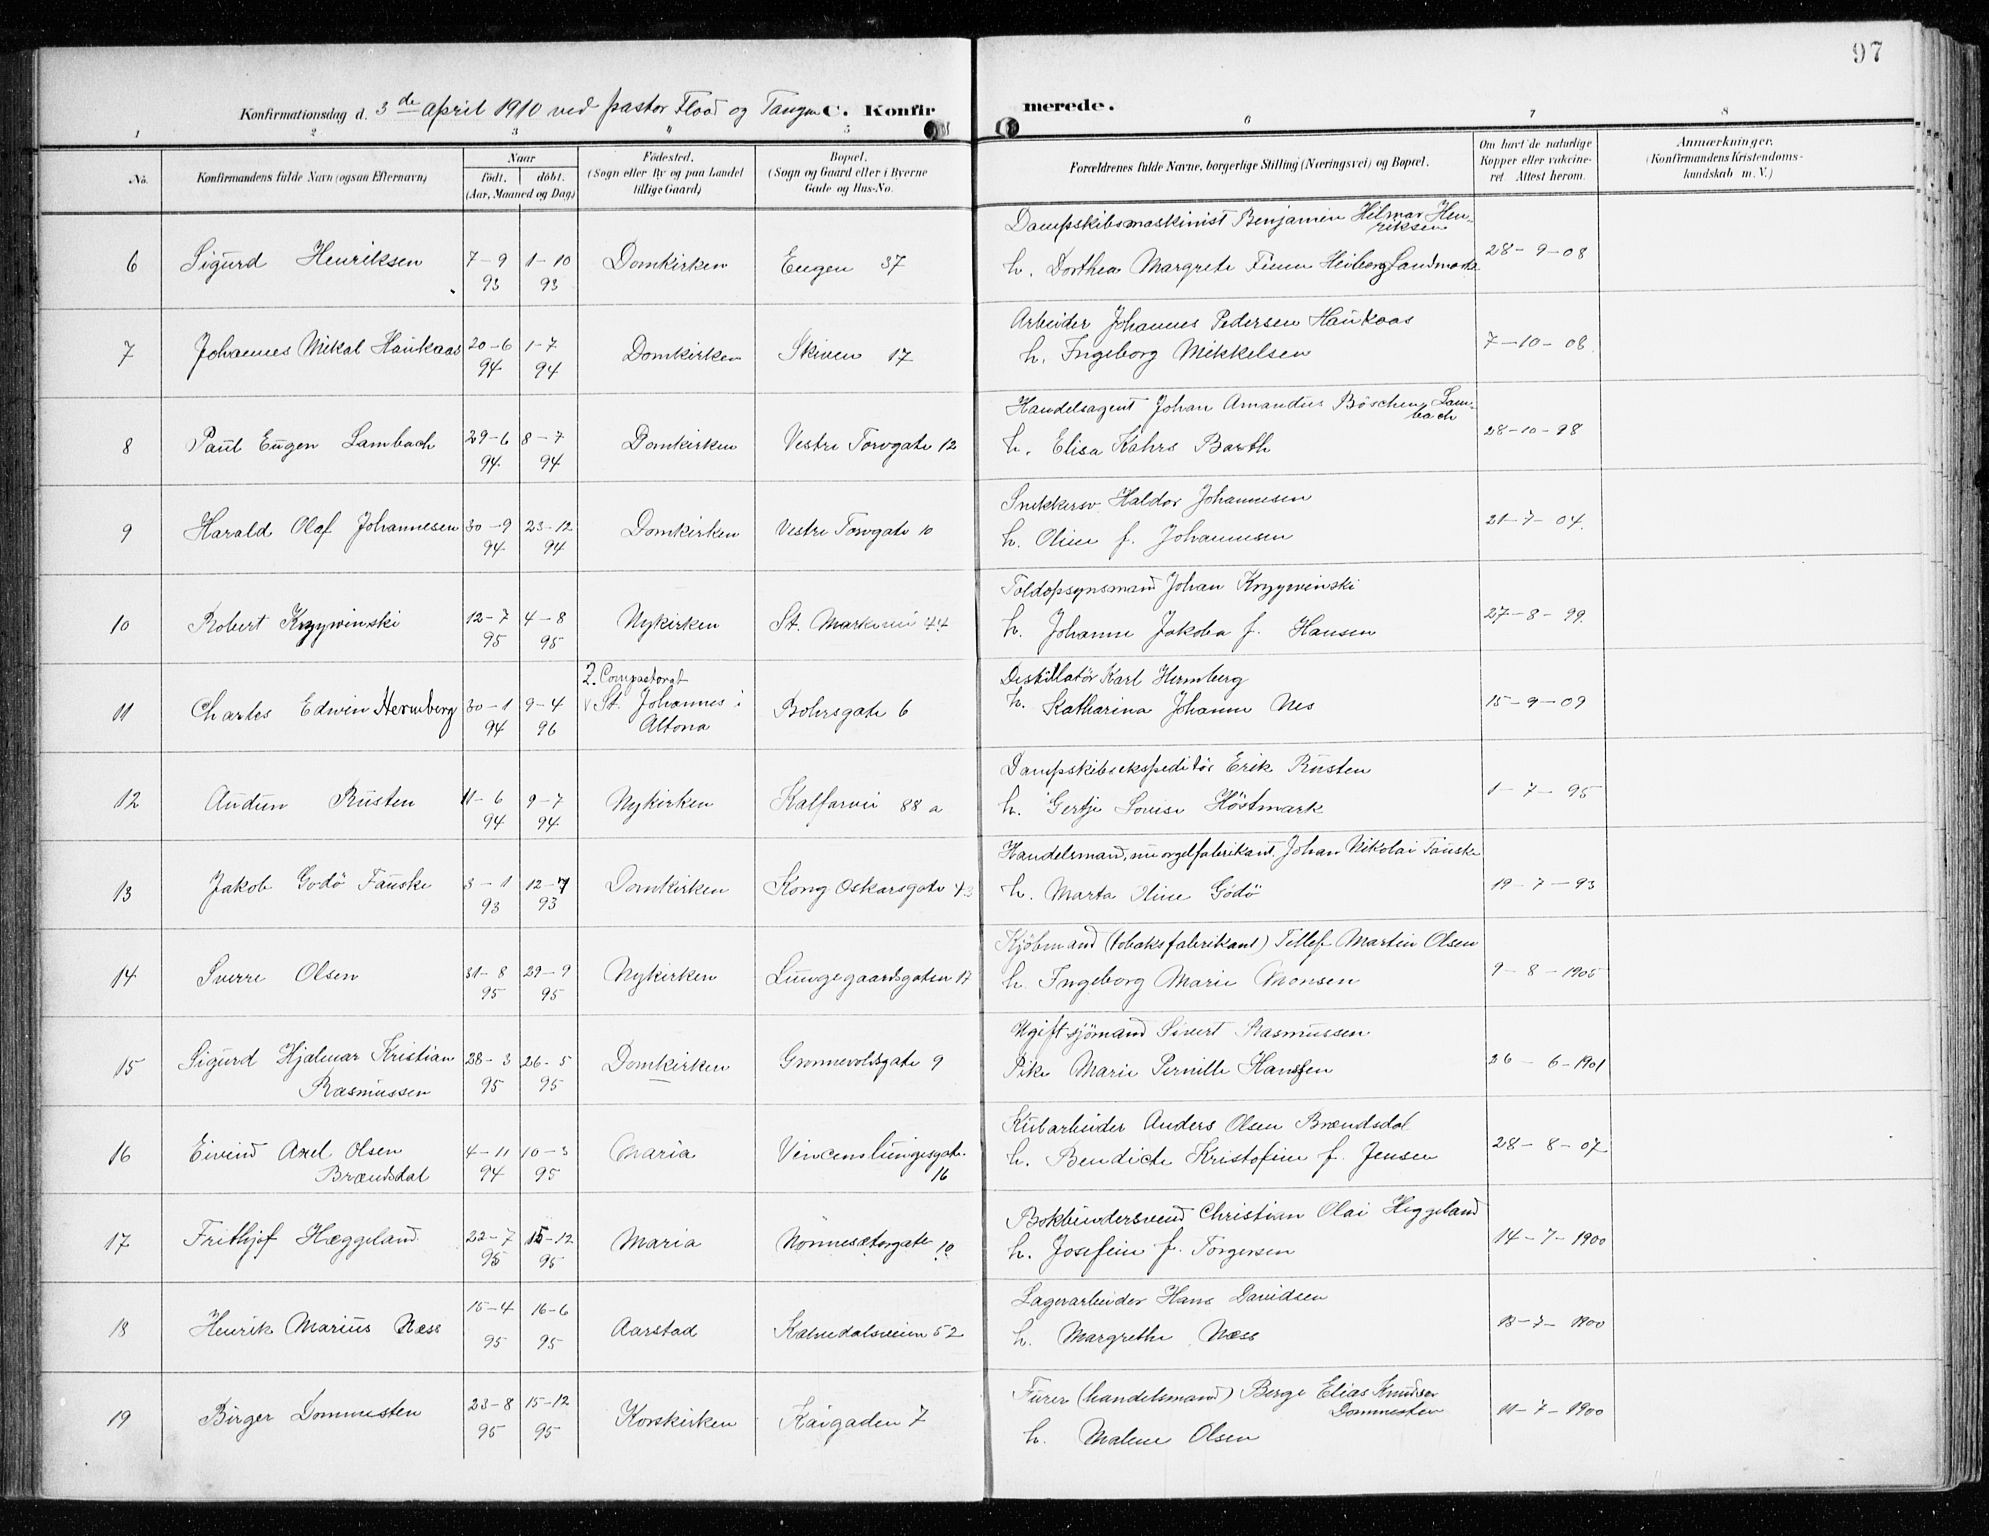 97
Konfirmationsdag d. 3de april 1910 ved pastor Flood og Tangen C. Konfirmerede.
1 2 3 4 5 6 7 8
No. Konfirmandens fulde Navn (ogsaa Efternavn) Naar født. døbt. (Aar, Maaned og Dag) Fødested. (Sogn eller By og paa Landet tillige Gaard) Bopæl. (Sogn og Gaard eller i Byerne Gade og Hus-No. Forældrenes fulde Navne, borgerlige Stilling (Næringsvei) og Bopæl. Om havt de naturlige Kopper eller vakcineret. Attest herom. Anmærkninger. (Konfirmandens Kristendomskundskab m. V.)
Dampskibsmaskinist Benjamin Hilmar Henriksen
6 Sigurd Henriksen 7-9 93 1-10 93 Domkirken Engen 37 h. Dorthea Margrete Heiberg Landmark 28-9-08
Arbeider Johannes Pedersen Haukaas
7 Johannes Mikal Haukaas 20-6 94 1-7 94 Domkirken Skiven 17 h. Ingeborg Mikkelsen 7-10-08
Handelsagent Johan Amandus Böschen Lambach
8 Paul Eugen Lambach 29-6 94 8-7 94 Domkirken Vestre Torvgate 12 h. Elisa Kahrs Barth 28-10-98
Snekkersv. Haldor Johannesen
9 Harald Olaf Johannesen 30-9 94 23-12 94 Domkirken Vestre Torvgate 10 h. Oline f. Johannesen 21-7-04
Toldopsynsmand Johan Krzywinski
10 Robert Krzywinski 12-7 95 4-8 95 Nykirken St. Markevei 44 h. Johanne Jakoba f. Hansen 27-8-99
Destillatör Karl Hermberg
11 Charles Edwin Hermberg 30-1 94 9-4 96 2. Compastorat v. St. Johannes i Altona Bohrsgate 6 h. Katharina Johanne Nes 15-9-09
Dampskibsekspeditör Erik Rusten
12 Audun Rusten 11-6 94 9-7 94 Nykirken Kalfarvei 88 a h. Gertje Lovise Höstmark 1-7-95
Handelsmand, nu orgelfabrikant, Johan Nikolai Fauske
13 Jakob Godö Fauske 3-1 93 12-7 93 Domkirken Kong Oskarsgate 43 h. Marta Oline Godö 19-7-93
Kjöbmand (tobaksfabrikant) Tellef Martin Olsen
14 Sverre Olsen 31-8 95 29-9 95 Nykirken Lungegaardsgaten 17 h. Ingeborg Marie Monsen 9-8-1905
Ugift sjömand Sivert Rasmussen
15 Sigurd Hjalmar Kristian Rasmussen 28-3 95 26-5 95 Domkirken Grønnevoldsgate 9 Pike Marie Pernille Hansen 26-6-1901
Kularbeider Anders Olsen Brændsdal
16 Eivind Axel Olsen Brændsdal 4-11 94 10-3 95 Maria Vincenslungesgate 16 h. Bendicte Kristofine f. Jensen 28-8-07
Bokbindersvend Christian Olai Heggeland
17 Frithjof Hæggeland 22-7 95 15-12 95 Maria Nonnesætergate 10 h. Josefine f. Torgersen 14-7-1900
Lagerarbeider Hans Davidsen
18 Henrik Marius Næss 15-4 95 16-6 95 Aarstad Kalvedalsveien 52 h. Margrethe Næss 13-7-1900
Fører (handelsmand) Berge Elias Knudsen Dommesten
19 Birger Dommesten 23-8 95 15-12 95 Korskirken Kaigaden 7 h. Malene Olsen 11-7-1900